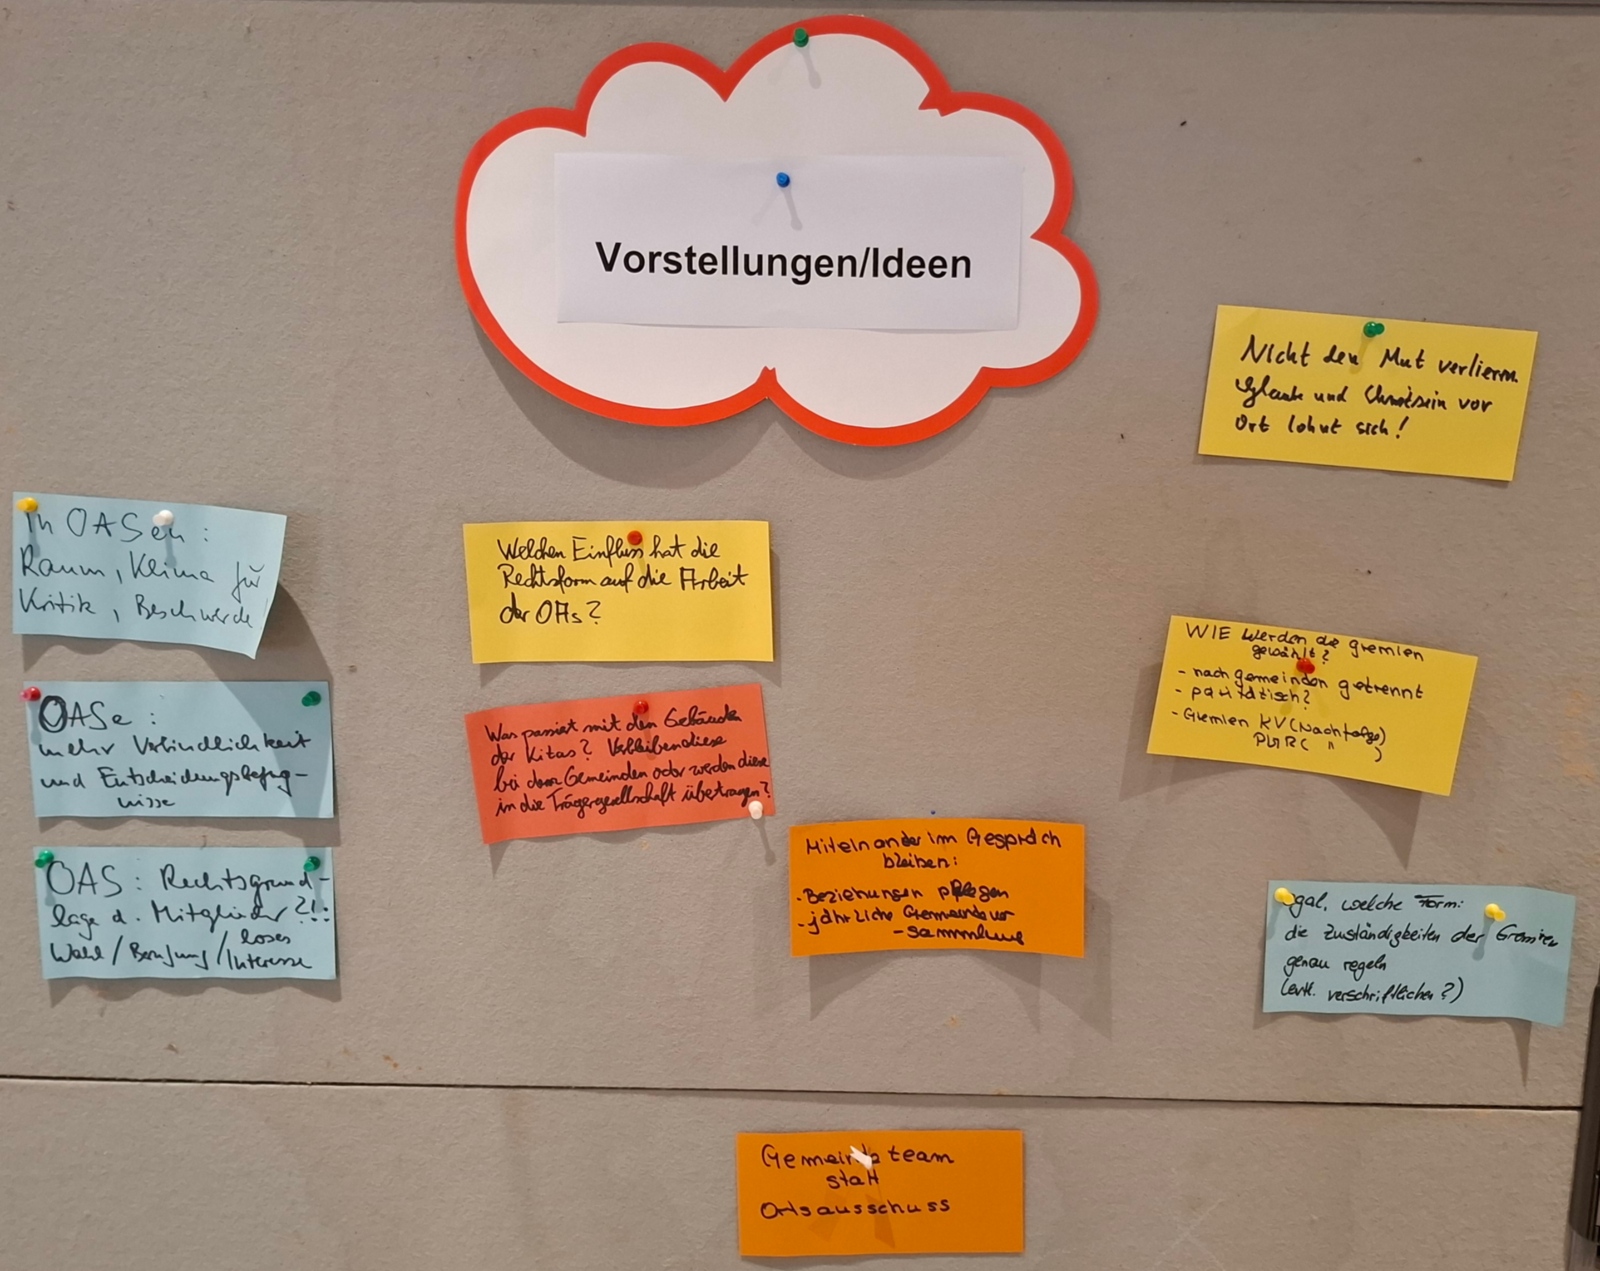 Vorstellungen/Ideen
Nicht den Mut verlieren
Glaube und Christsein vor
Ort lohnt sich!
In OASen:
Raum, Klima für
Kritik, Beschwerde
OASe:
mehr Verbindlichkeit
und Entscheidungsbefug-
nisse
OAS: Rechtsgrund-
lage d. Mitglieder?!:
Wahl/Berufung/loses
Interesse
Welchen Einfluss hat die
Rechtsform auf die Arbeit
der OAs?
Was passiert mit den Gebäuden
der Kitas? Verbleiben diese
bei den Gemeinden oder werden diese
in die Trägergesellschaft übertragen?
Miteinander im Gespräch
bleiben:
- Beziehungen pflegen
- jährliche Gemeindever
- sammlung
WIE werden die gremien
gewählt?
- nach gemeinden getrennt
- paritätisch?
- Gremien KV (Nachfolge)
PGR ( " )
Egal, welche Form:
die Zuständigkeiten der Gremien
genau regeln
(evtl. verschriftlichen?)
Gemeindeteam
statt
Ortsausschuss